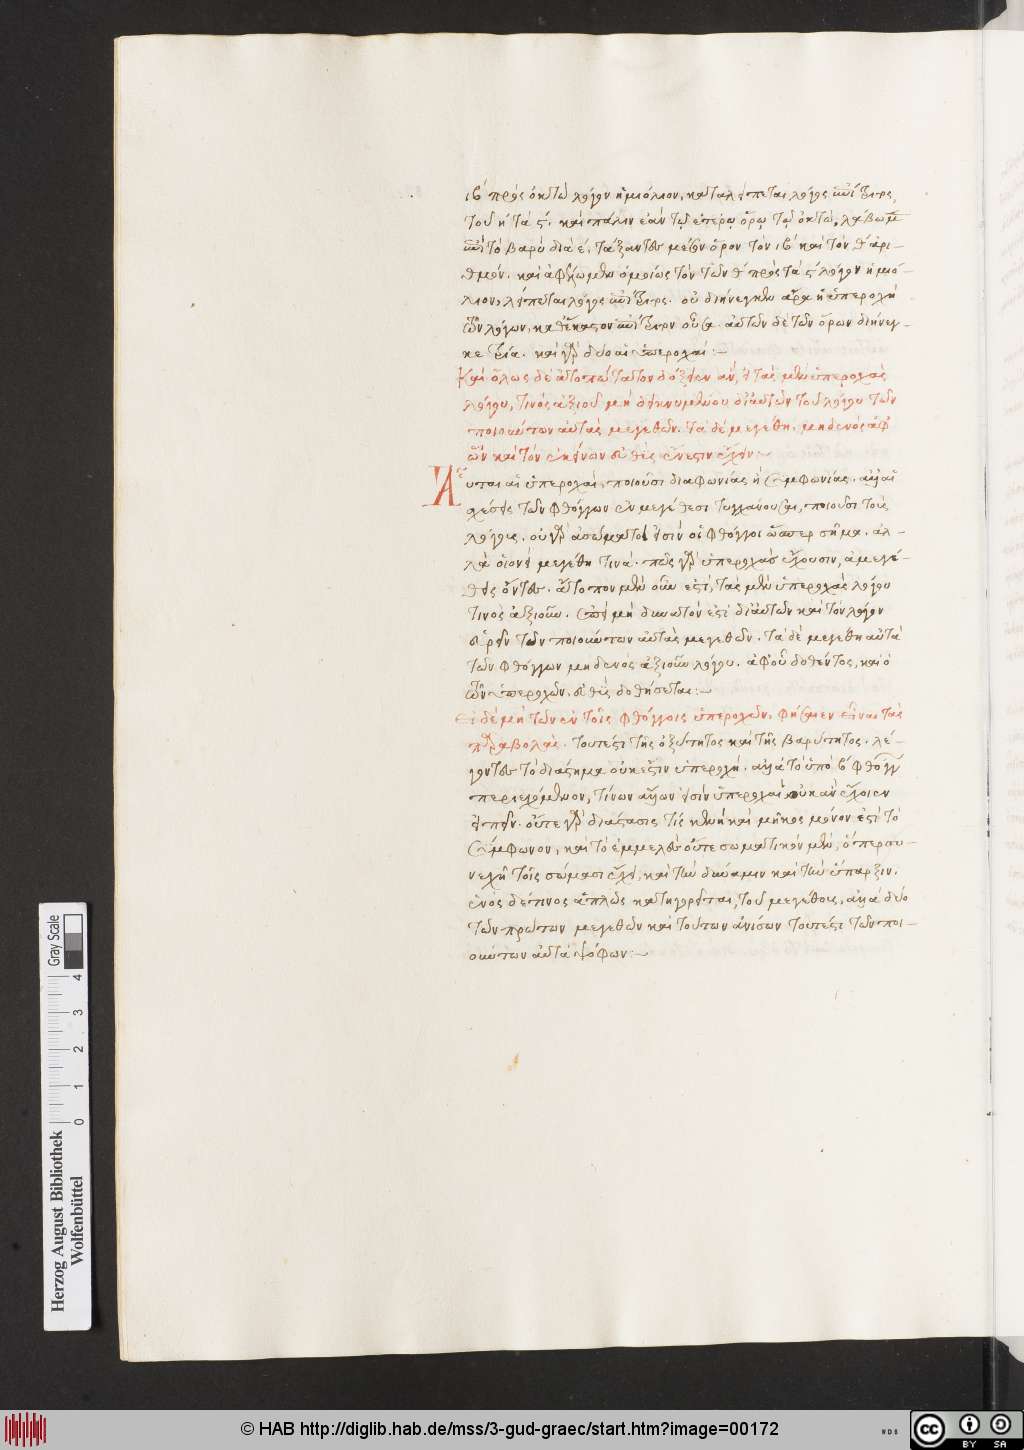 ιβ πρὸς ὀκτὼ λόγον ἡμιόλιον, καταλείπεται λόγος ἐπίτριτος
τοῦ η τὰ ϛ. καὶ πάλιν ἐὰν τῷ ἑτέρῳ ὅρῳ τῷ ὀκτὼ, λάβωμεν
ἐπὶ τὸ βαρὺ διὰ ε, τάξαντες μείζον ὅρον τὸν ιβ καὶ τὸν θ ἀρι-
θμόν. καὶ ἀφέλωμεν ὁμοίως τὸν τῶν θ πρὸς τὰ ϛ λόγον ἡμιό-
λιον, λείπεται λόγος ἐπίτριτος. οὐ διήνεγκεν ἄρα ἡ ὑπεροχὴ
τῶν λόγων, καθ' ἕκαστον ἐπίτριτον οὖσα. αὐτῶν δὲ τῶν ὅρων διήνεγ-
κε τρία. καὶ γὰρ δύο αἱ ὑπεροχαί:
Καὶ ὅλως δὲ ἀτοπώτατον δόξειεν ἂν, εἰ τὰς μὲν ὑπεροχὰς
λόγου, τινὸς ἀξιοῦ μὴ δεικνυμένου δι' αὐτῶν τοῦ λόγου τῶν
ποιουσῶν αὐτὰς μεγεθῶν. τὰ δὲ μεγέθη, μηδενὸς ἀφ'
ὧν καὶ τὸν ἐκείνων εὐθὺς ἔνεστιν ἔχειν:
Αὗται αἱ ὑπεροχαὶ, ποιοῦσι διαφωνίας ἢ συμφωνίας. ἀλλ' αἱ
σχέσεις τῶν φθόγγων ἐν μεγέθεσι τυγχάνουσαι, ποιοῦσι τοὺς
λόγους. οὐ γὰρ ἀσώματοι εἰσὶν οἱ φθόγγοι ὥσπερ σῆμα. ἀλ-
λὰ οἱονεὶ μεγέθη τινά. πῶς γὰρ ὑπεροχὰς ἔχουσιν, ἀμεγέ-
θεις ὄντες. ἄτοπον μὲν οὖν ἐστὶ, τὰς μὲν ὑπεροχὰς λόγου
τινὸς ἀξιοῦν. ἐπεὶ μὴ δυνατὸν ἐστὶ δι' αὐτῶν καὶ τὸν λόγον
εὑρεῖν τῶν ποιούντων αὐτὰς μεγεθῶν. τὰ δὲ μεγέθη αὐτὰ
τῶν φθόγγων μηδενὸς ἀξιοῦν λόγου. ἀφ' οὗ δοθέντος, καὶ ὁ
τῶν ὑπεροχῶν, εὐθὺς δοθήσεται:
Εἰ δὲ μὴ τῶν ἐν τοῖς φθόγγοις ὑπεροχῶν, φήσαιεν εἶναι τὰς
παραβολὰς. τουτέστι τῆς ὀξύτητος καὶ τῆς βαρύτητος. λέ-
γοντες τὸ διάστημα οὐκ ἔστιν ὑπεροχή. ἀλλὰ τὸ ὑπὸ β φθόγγων
περιεχόμενον, τίνων ἄλλων εἰσὶν ὑπεροχαὶ οὐκ ἂν ἔχοιεν
εἰπεῖν. οὔτε γὰρ διάστασις τίς κενὴ καὶ μῆκος μόνον ἐστὶ τὸ
σύμφωνον, καὶ τὸ ἐμμελὲς οὔτε σωματικὸν μὲν, ὅπερ συ-
νεχῆ τοῖς σώμασι ἔχει, καὶ τὴν δύναμιν καὶ τὴν ὕπαρξιν.
ἑνὸς δέ τινος ἁπλῶς κατηγορεῖται, τοῦ μεγέθους, ἀλλὰ δύο
τῶν πρώτων μεγεθῶν καὶ τούτων ἀνίσων τουτέστι τῶν ποι-
ούντων αὐτὰ ψόφων:
Herzog August Bibliothek
Wolfenbüttel
0 1 2 3 4
Gray Scale
© HAB http://diglib.hab.de/mss/3-gud-graec/start.htm?image=00172
cc BY SA